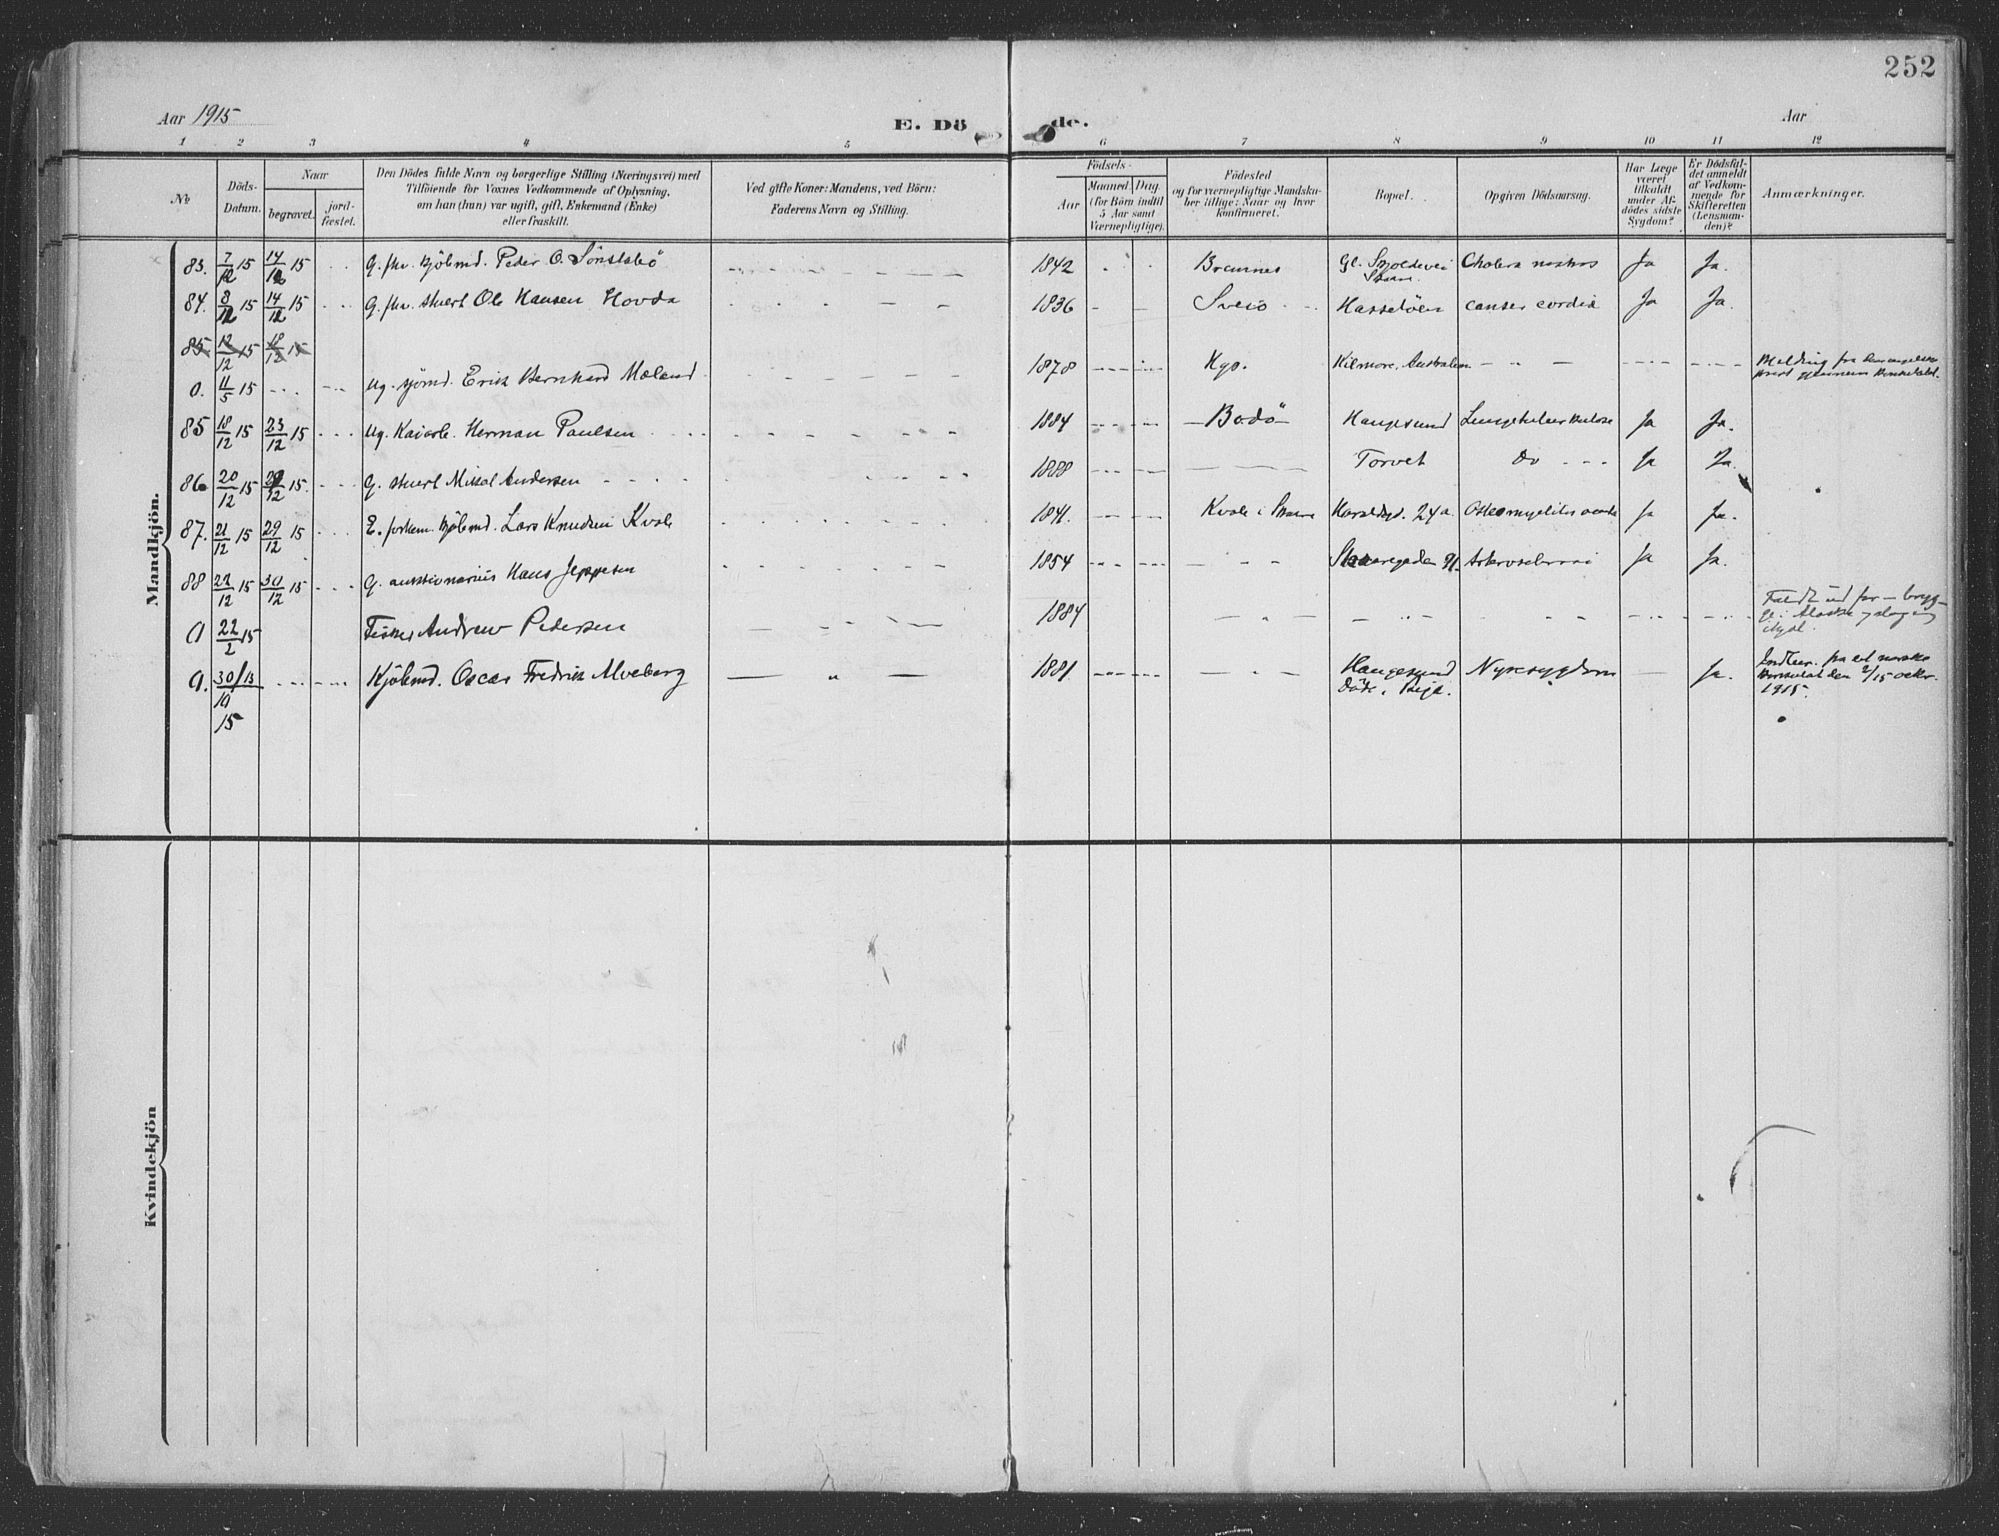 252
Aar 1915
E. Dö
de.
Aar
1 2 3 4 5 6 7 8 9 10 11 12
No
Döds-
Datum.
Naar
begravet.
jord-
fæstet.
Den Dödes fulde Navn og borgerlige Stilling (Næringsvei) med
Tilföiende for Voxnes Vedkommende af Oplysning,
om han (hun) var ugift, gift, Enkemand (Enke)
eller fraskilt.
Ved gifte Koner: Mandens, ved Börn:
Faderens Navn og Stilling.
Födsels-
Aar
Maaned. Dag.
(for Börn indtil
5 Aar samt
Værnepligtige).
Födested
og for værnepligtige Mandsku-
ber tillige: Naar og hvor
konfirmeret.
Bopæl.
Opgiven Dödsaarsag.
Har Læge
været
tilkaldt
under Af-
dödes sidste
Sygdom?
Er Dödsfal-
det anmeldt
af Vedkom-
mende for
Skifteretten
(Lensman-
den)?
Anmærkninger.
Mandkjön.
83. 7/12 15 14/12 15 G. fhv. kjöbmd. Peder O. Sönstabö 1842 Gl. Skjoldevei Cholera nostras Ja Ja.
Skaare.
84. 8/12 15 14/12 15 G. fhv. stuert Ole Hansen Hovda 1836 Sveio Hasselöen cancer cordia Ja Ja.
85 12/12 15 18/12 15
0. 11/5 15 Ug. sjömd. Erik Bernhard Mæland 1878 Hgs. Kilmore, Australien Melding fra
prest gjennem Konsulatet.
85 18/12 15 23/12 15 Ug. Kaiarb. Herman Paulsen 1884 Bodö Haugesund Lungetuberkulose Ja Ja.
86 20/12 15 15. G. stuert Mikal Andersen 1888 Torvet Do Ja Ja.
87. 21/12 15 29/12 15 E. forhen. kjöbmd. Lars Knudsen Kvale 1841. Kvale i Skaare Haraldsgt. 24a. Osteomyelitis Ja Ja.
88 22/12 15 30/12 15 G. auktionarius Hans Jeppesen 1854 Skaaregaden 91. Ja Ja.
0 22/2 15 Fisker Andrew Pedersen 1884 Faldt ud for brygge
i Alaska og slog sig
ihjel.
0. 30/13 Kjöbmd. Oscar Fredrik Alveberg 1881 Haugesund Nyresygdom Ja. Indber. fra et norske
10 Döde i Konsulat den 2/15 oktbr.
15 1915.
Kvindekjön